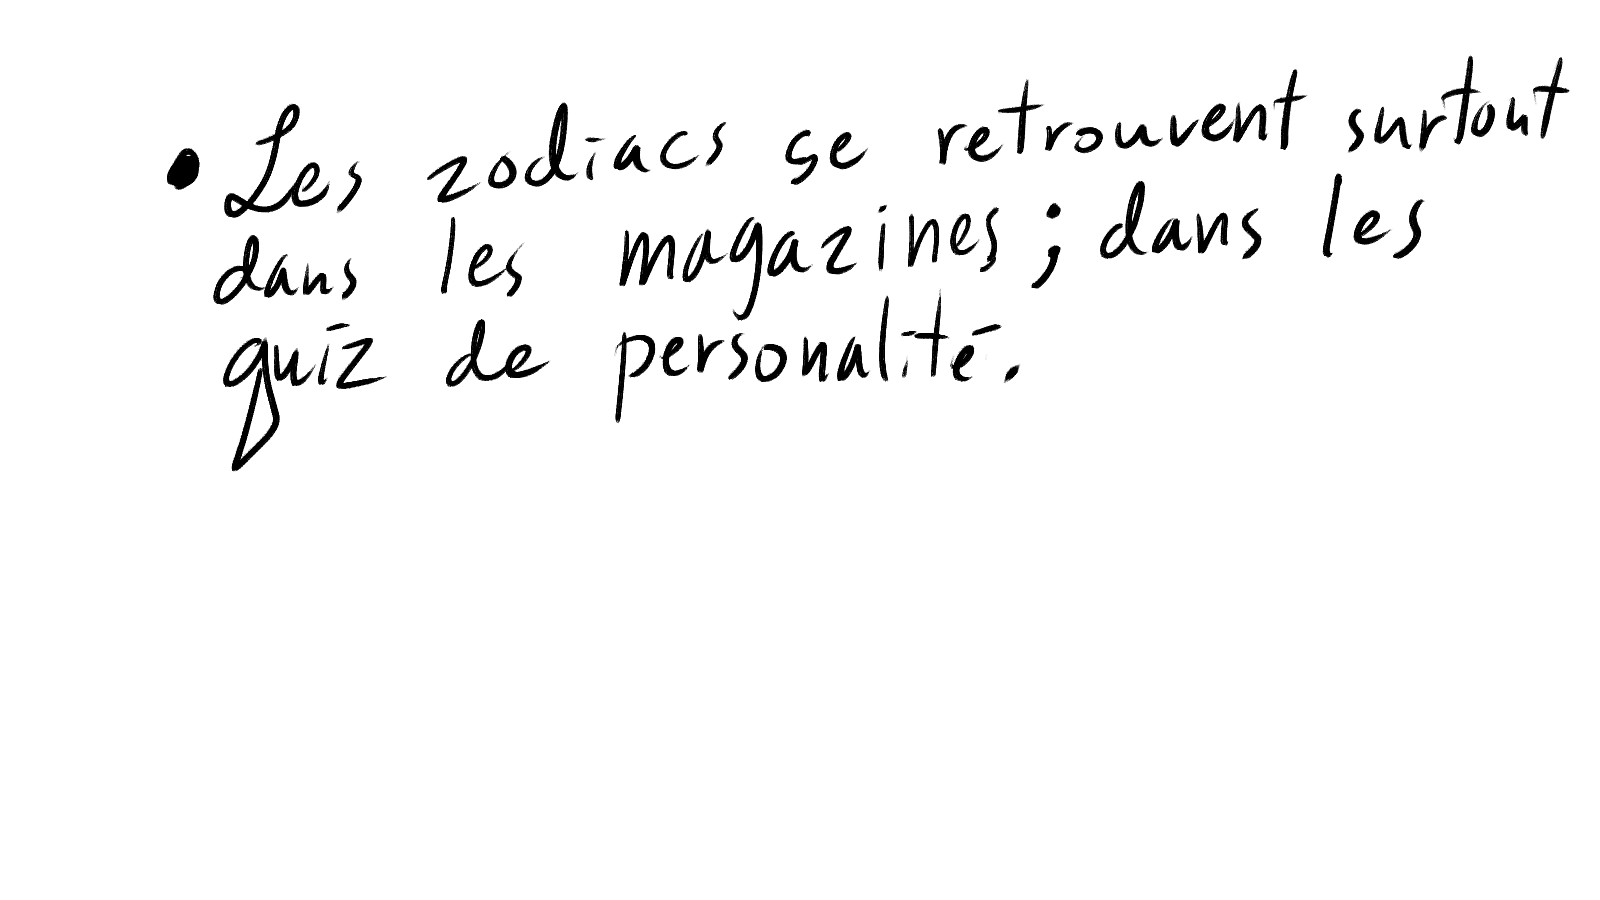 • Les zodiacs se retrouvent surtout
dans les magazines ; dans les
quiz de personalité.